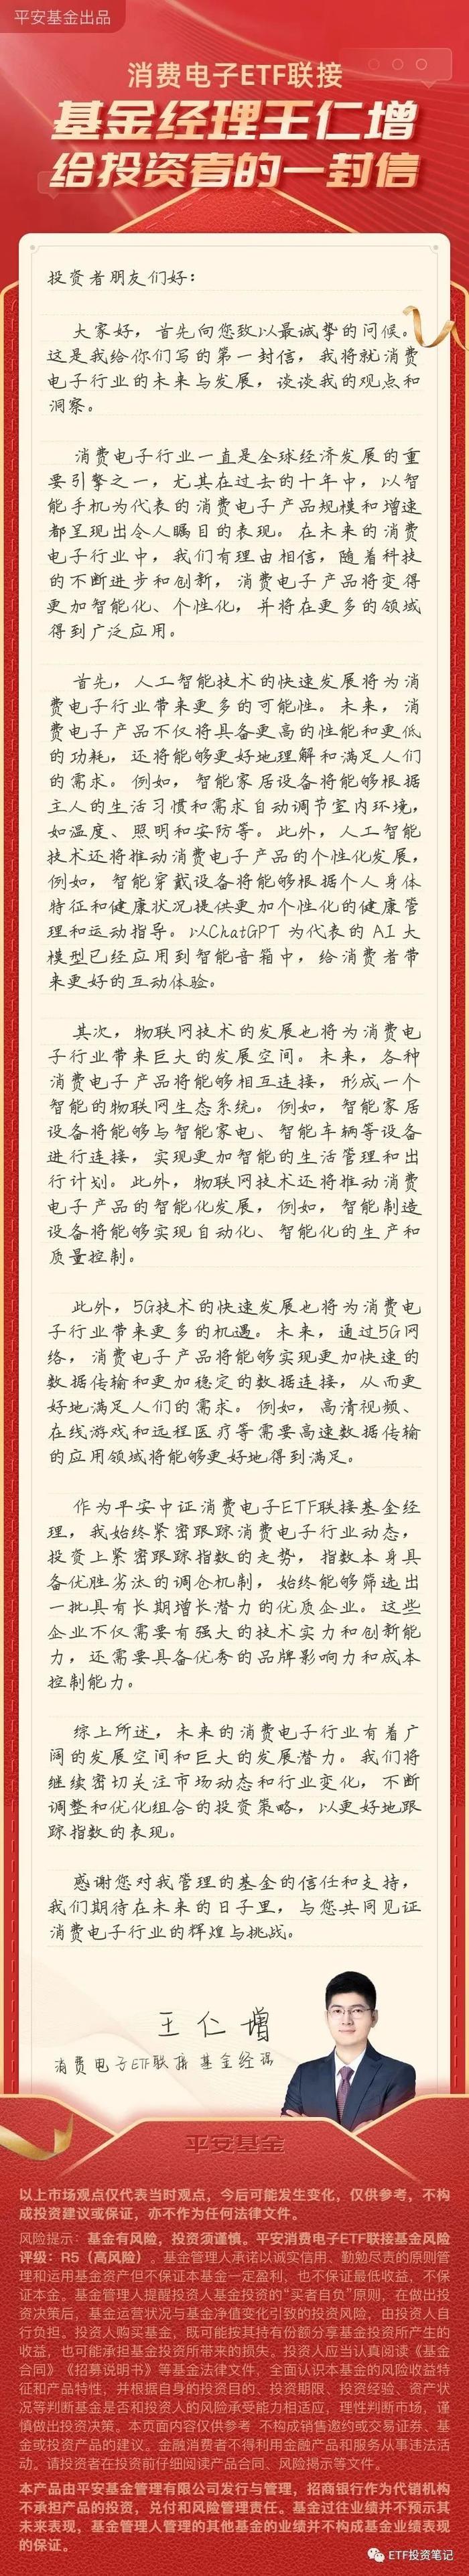 平安基金出品
消费电子ETF联接
基金经理王仁增
给投资者的一封信
投资者朋友们好：
大家好，首先向您致以最诚挚的问候。
这是我给你们写的第一封信，我将就消费
电子行业的未来与发展，谈谈我的观点和
洞察。
消费电子行业一直是全球经济发展的重
要引擎之一，尤其在过去的十年中，以智
能手机为代表的消费电子产品规模和增速
都呈现出令人瞩目的表现。在未来的消费
电子行业中，我们有理由相信，随着科技
的不断进步和创新，消费电子产品将变得
更加智能化、个性化，并将在更多的领域
得到广泛应用。
首先，人工智能技术的快速发展将为消
费电子行业带来更多的可能性。未来，消
费电子产品不仅将具备更高的性能和更低
的功耗，还将能够更好地理解和满足人们
的需求。例如，智能家居设备将能够根据
主人的生活习惯和需求自动调节室内环境，
如温度、照明和安防等。此外，人工智能
技术还将推动消费电子产品的个性化发展，
例如，智能穿戴设备将能够根据个人身体
特征和健康状况提供更加个性化的健康管
理和运动指导。以ChatGPT 为代表的 AI 大
模型已经应用到智能音箱中，给消费者带
来更好的互动体验。
其次，物联网技术的发展也将为消费电
子行业带来巨大的发展空间。未来，各种
消费电子产品将能够相互连接，形成一个
智能的物联网生态系统。例如，智能家居
设备将能够与智能家电、智能车辆等设备
进行连接，实现更加智能的生活管理和出
行计划。此外，物联网技术还将推动消费
电子产品的智能化发展，例如，智能制造
设备将能够实现自动化、智能化的生产和
质量控制。
此外，5G技术的快速发展也将为消费电
子行业带来更多的机遇。未来，通过5G网
络，消费电子产品将能够实现更加快速的
数据传输和更加稳定的数据连接，从而更
好地满足人们的需求。例如，高清视频、
在线游戏和远程医疗等需要高速数据传输
的应用领域将能够更好地得到满足。
作为平安中证消费电子ETF联接基金经
理，我始终紧密跟踪消费电子行业动态，
投资上紧密跟踪指数的走势，指数本身具
备优胜劣汰的调仓机制，始终能够筛选出
一批具有长期增长潜力的优质企业。这些
企业不仅需要有强大的技术实力和创新能
力，还需要具备优秀的品牌影响力和成本
控制能力。
综上所述，未来的消费电子行业有着广
阔的发展空间和巨大的发展潜力。我们将
继续密切关注市场动态和行业变化，不断
调整和优化组合的投资策略，以更好地跟
踪指数的表现。
感谢您对我管理的基金的信任和支持，
我们期待在未来的日子里，与您共同见证
消费电子行业的辉煌与挑战。
王仁增
消费电子ETF联接 基金经理
平安基金
以上市场观点仅代表当时观点，今后可能发生变化，仅供参考，不构
成投资建议或保证，亦不作为任何法律文件。
风险提示：基金有风险，投资须谨慎。平安消费电子ETF联接基金风险
评级：R5（高风险）。基金管理人承诺以诚实信用、勤勉尽责的原则管
理和运用基金资产但不保证本基金一定盈利，也不保证最低收益，不保
证本金。基金管理人提醒投资人基金投资的“买者自负”原则，在做出投
资决策后，基金运营状况与基金净值变化引致的投资风险，由投资人自
行负担。投资人购买基金，既可能按其持有份额分享基金投资所产生的
收益，也可能承担基金投资所带来的损失。投资人应当认真阅读《基金
合同》《招募说明书》等基金法律文件，全面认识本基金的风险收益特
征和产品特性，并根据自身的投资目的、投资期限、投资经验、资产状
况等判断基金是否和投资人的风险承受能力相适应，理性判断市场，谨
慎做出投资决策。本页面内容仅供参考 不构成销售邀约或交易证券、基
金或投资产品的建议。金融消费者不得利用金融产品和服务从事违法活
动。请投资者在投资前仔细阅读产品合同、风险揭示等文件。
本产品由平安基金管理有限公司发行与管理，招商银行作为代销机构
不承担产品的投资，兑付和风险管理责任。基金过往业绩并不预示其
未来表现，基金管理人管理的其他基金的业绩并不构成基金业绩表现
的保证。
ETF投资笔记